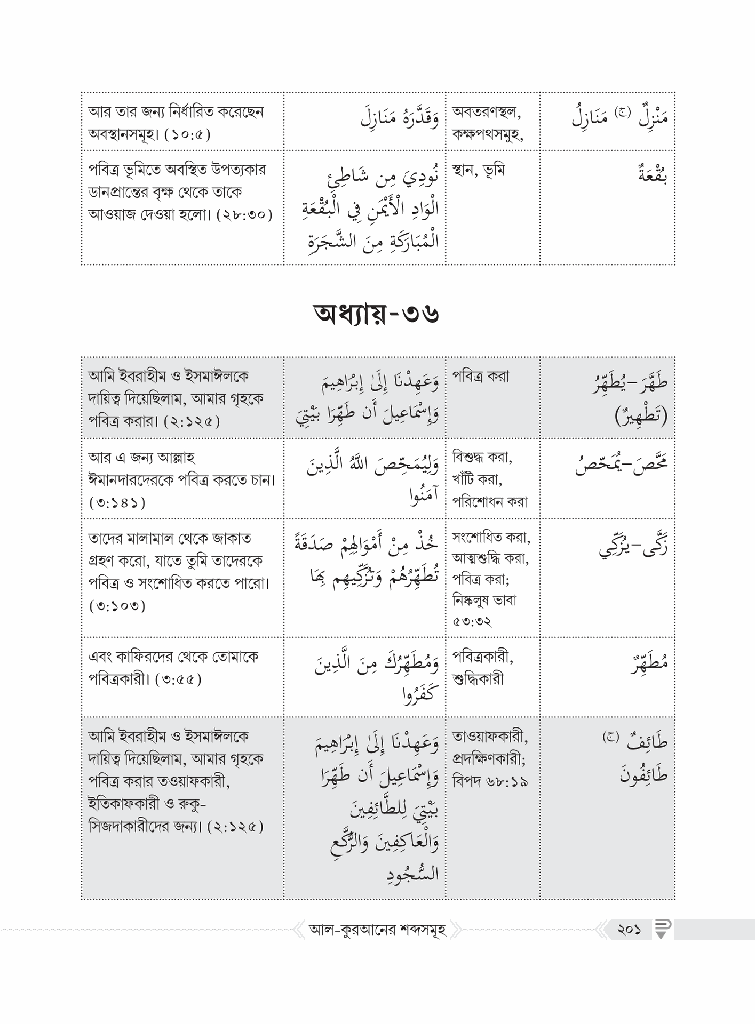 আর তার জন্য নির্ধারিত করেছেন
অবস্থানসমূহ। (১০:৫)
وَقَدَّرَهُ مَنَازِلَ
অবতরণস্থল,
কক্ষপথসমূহ,
مَنْزِلٌ (ج) مَنَازِلُ
পবিত্র ভূমিতে অবস্থিত উপত্যকার
ডানপ্রান্তের বৃক্ষ থেকে তাকে
আওয়াজ দেওয়া হলো। (২৮:৩০)
نُودِيَ مِن شَاطِئِ
الْوَادِ الْأَيْمَنِ فِي الْبُقْعَةِ
الْمُبَارَكَةِ مِنَ الشَّجَرَةِ
স্থান, ভূমি
بُقْعَةٌ
অধ্যায়-৩৬
আমি ইবরাহীম ও ইসমাঈলকে
দায়িত্ব দিয়েছিলাম, আমার গৃহকে
পবিত্র করার। (২:১২৫)
وَعَهِدْنَا إِلَىٰ إِبْرَاهِيمَ
وَإِسْمَاعِيلَ أَن طَهِّرَا بَيْتِيَ
পবিত্র করা
طَهَّرَ–يُطَهِّرُ
(تَطْهِيرٌ)
আর এ জন্য আল্লাহ
ঈমানদারদেরকে পবিত্র করতে চান।
(৩:১৪১)
وَلِيُمَحِّصَ اللَّهُ الَّذِينَ
آمَنُوا
বিশুদ্ধ করা,
খাঁটি করা,
পরিশোধন করা
مَحَّصَ–يُمَحِّصُ
তাদের মালামাল থেকে জাকাত
গ্রহণ করো, যাতে তুমি তাদেরকে
পবিত্র ও সংশোধিত করতে পারো।
(৩:১০৩)
خُذْ مِنْ أَمْوَالِهِمْ صَدَقَةً
تُطَهِّرُهُمْ وَتُزَكِّيهِم بِهَا
সংশোধিত করা,
আত্মশুদ্ধি করা,
পবিত্র করা;
নিষ্কলুষ ভাবা
৫৩:৩২
زَكَّى–يُزَكِّي
এবং কাফিরদের থেকে তোমাকে
পবিত্রকারী। (৩:৫৫)
وَمُطَهِّرُكَ مِنَ الَّذِينَ
كَفَرُوا
পবিত্রকারী,
শুদ্ধিকারী
مُطَهِّرٌ
আমি ইবরাহীম ও ইসমাঈলকে
দায়িত্ব দিয়েছিলাম, আমার গৃহকে
পবিত্র করার তওয়াফকারী,
ইতিকাফকারী ও রুকু-
সিজদাকারীদের জন্য। (২:১২৫)
وَعَهِدْنَا إِلَىٰ إِبْرَاهِيمَ
وَإِسْمَاعِيلَ أَن طَهِّرَا
بَيْتِيَ لِلطَّائِفِينَ
وَالْعَاكِفِينَ وَالرُّكَّعِ
السُّجُودِ
তাওয়াফকারী,
প্রদক্ষিণকারী;
বিপদ ৬৮:১৯
طَائِفٌ (ج)
طَائِفُونَ
আল-কুরআনের শব্দসমূহ
২০১